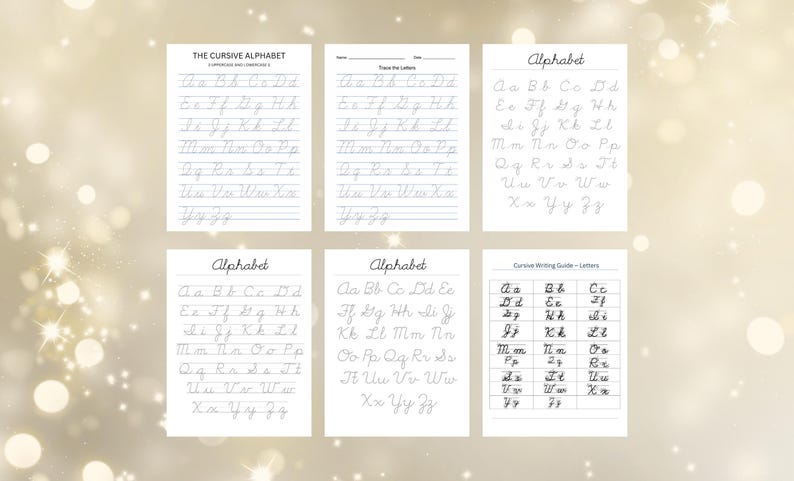 THE CURSIVE ALPHABET
Aa Bb Cc Dd
Ee Ff Gg Hh
Ii Jj Kk Ll
Mm Nn Oo Pp
Qq Rr Ss Tt
Uu Vv Ww Xx
Yy Zz
Name: Date:
Trace the Letters
Aa Bb Cc Dd
Ee Ff Gg Hh
Ii Jj Kk Ll
Mm Nn Oo Pp
Qq Rr Ss Tt
Uu Vv Ww Xx
Yy Zz
Alphabet
Aa Bb Cc Dd
Ee Ff Gg Hh
Ii Jj Kk Ll
Mm Nn Oo Pp
Qq Rr Ss Tt
Uu Vv Ww
Xx Yy Zz
Alphabet
Aa Bb Cc Dd
Ee Ff Gg Hh
Ii Jj Kk Ll
Mm Nn Oo Pp
Qq Rr Ss Tt
Uu Vv Ww
Xx Yy Zz
Alphabet
Aa Bb Cc Dd Ee
Ff Gg Hh Ii Jj
Kk Ll Mm Nn
Oo Pp Qq Rr Ss
Tt Uu Vv Ww
Xx Yy Zz
Cursive Writing Guide – Letters
Aa Bb Cc
Dd Ee Ff
Gg Hh Ii
Jj Kk Ll
Mm Nn Oo
Pp Qq Rr
Ss Tt Uu
Vv Ww Xx
Yy Zz